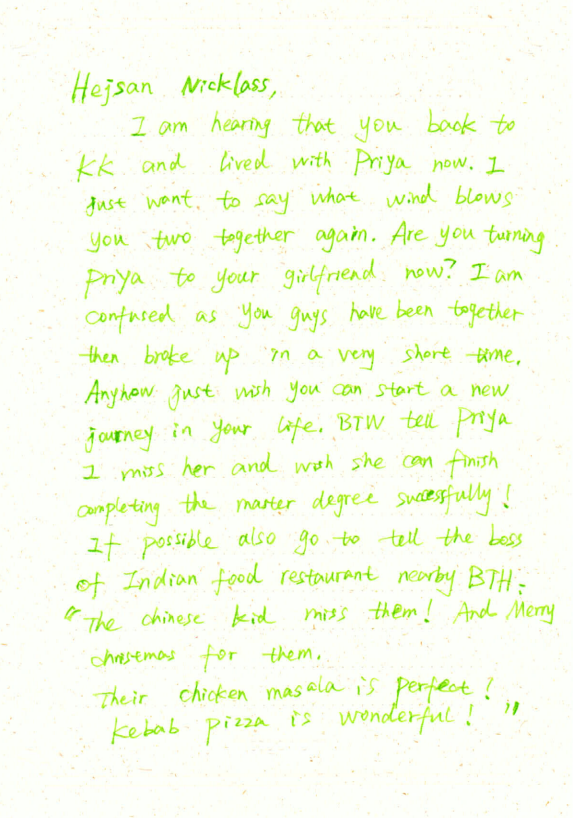 Hejsan Nicklass,
I am hearing that you back to
KK and lived with Priya now. I
just want to say what wind blows
you two together again. Are you turning
Priya to your girlfriend now? I am
confused as you guys have been together
then broke up in a very short time.
Anyhow just wish you can start a new
journey in your life. BTW tell Priya
I miss her and wish she can finish
completing the master degree successfully!
If possible also go to tell the boss
of Indian food restaurant nearby BTH:
"The chinese kid miss them! And Merry
christmas for them.
Their chicken masala is perfect!
kebab pizza is wonderful!"